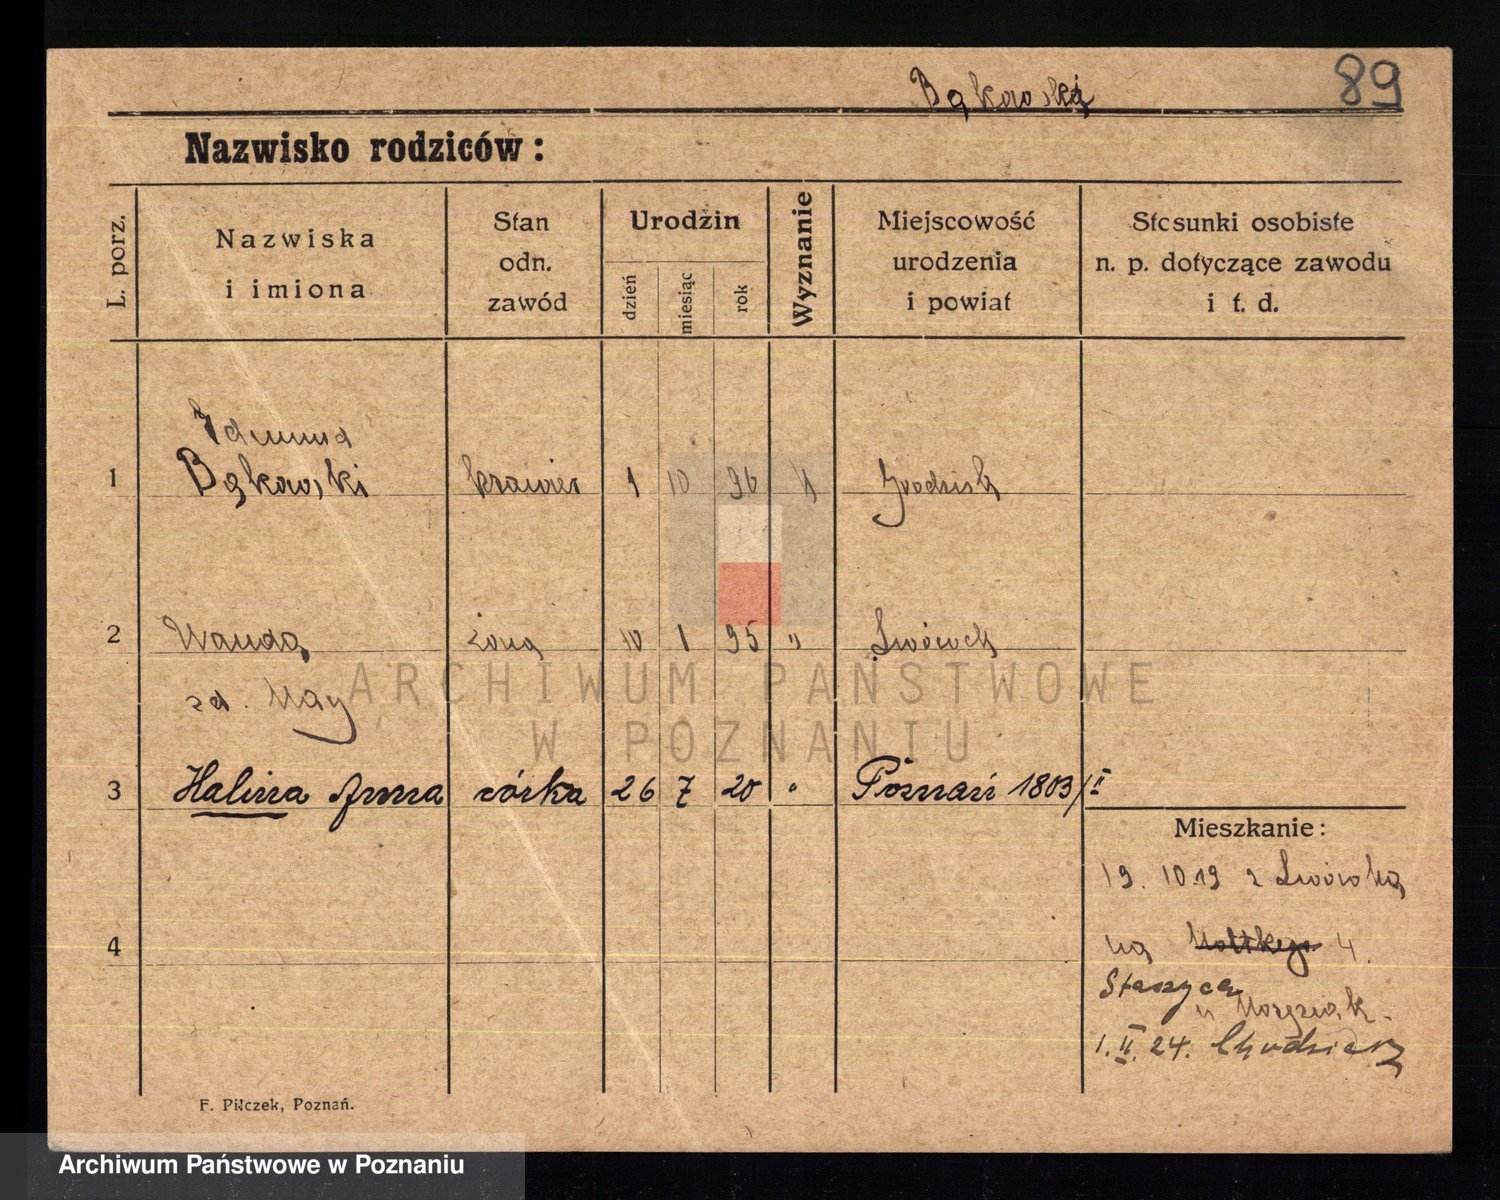 Bąkowski
89
Nazwisko rodziców :
L. porz.
Nazwiska
i imiona
Stan
odn.
zawód
Urodzin
dzień
miesiąc
rok
Wyznanie
Miejscowość
urodzenia
i powiat
Stosunki osobiste
n. p. dotyczące zawodu
i t. d.
Edmund
1 Bąkowski krawiec 1 10 96 k Grodzisk
2 Wanda żona 10 1 95 " Lwówek
zd. May
3 Halina Anna córka 26 7 20 " Poznań 1803/II
Mieszkanie :
19. 10 19 z Lwówka
4
na Moltkego 4.
Staszyca
u
1. II. 24. Chodzież
F. Pilczek, Poznań.
ARCHIWUM PAŃSTWOWE
W POZNANIU
Archiwum Państwowe w Poznaniu